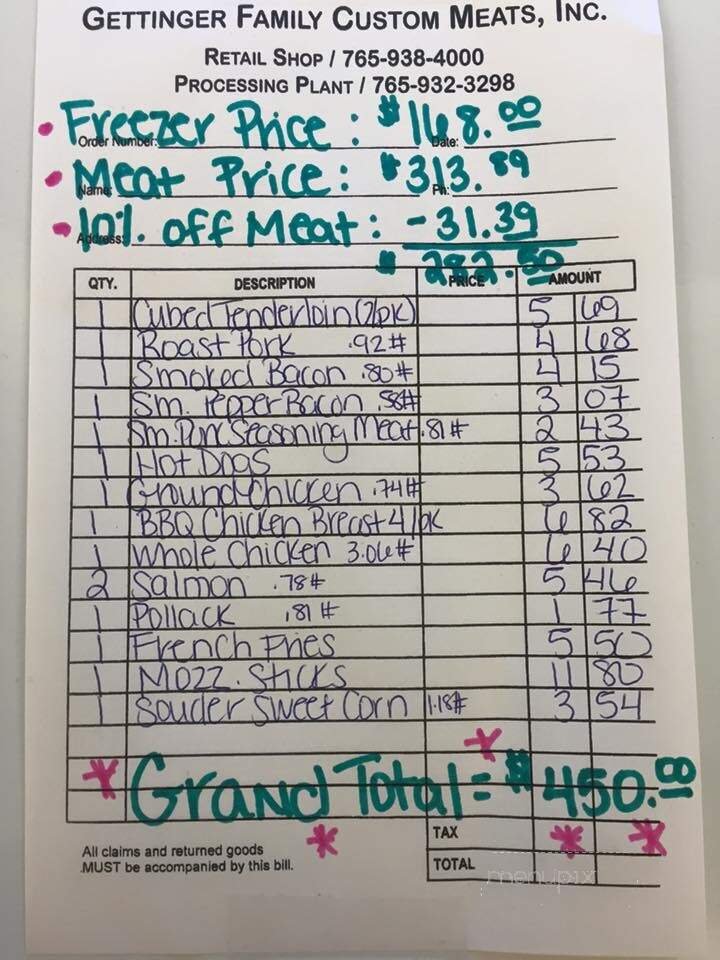 GETTINGER FAMILY CUSTOM MEATS, INC.
RETAIL SHOP / 765-938-4000
PROCESSING PLANT / 765-932-3298
• Freezer Price: $168.00
Order Number: Date:
• Meat Price: $313.89
Name: Ph:
• 10% off Meat: -31.39
Address:
$282.50
QTY. DESCRIPTION PRICE AMOUNT
1 Cubed Tenderloin (2/pk) 5 69
1 Roast Pork .92# 4 68
1 Smoked Bacon .80# 4 15
1 Sm. Pepper Bacon .58# 3 07
1 Sm. Pork Seasoning Meat .81# 2 43
1 Hot Dogs 5 53
1 Ground Chicken .74# 3 62
1 BBQ Chicken Breast 4/pk 6 82
1 Whole Chicken 3.06# 6 40
2 Salmon .78# 5 46
1 Pollack .81# 1 77
1 French Fries 5 50
1 Mozz. Sticks 11 80
1 Souder Sweet Corn 1.18# 3 54
* Grand Total = $450.00
All claims and returned goods
MUST be accompanied by this bill.
TAX
TOTAL
menupix